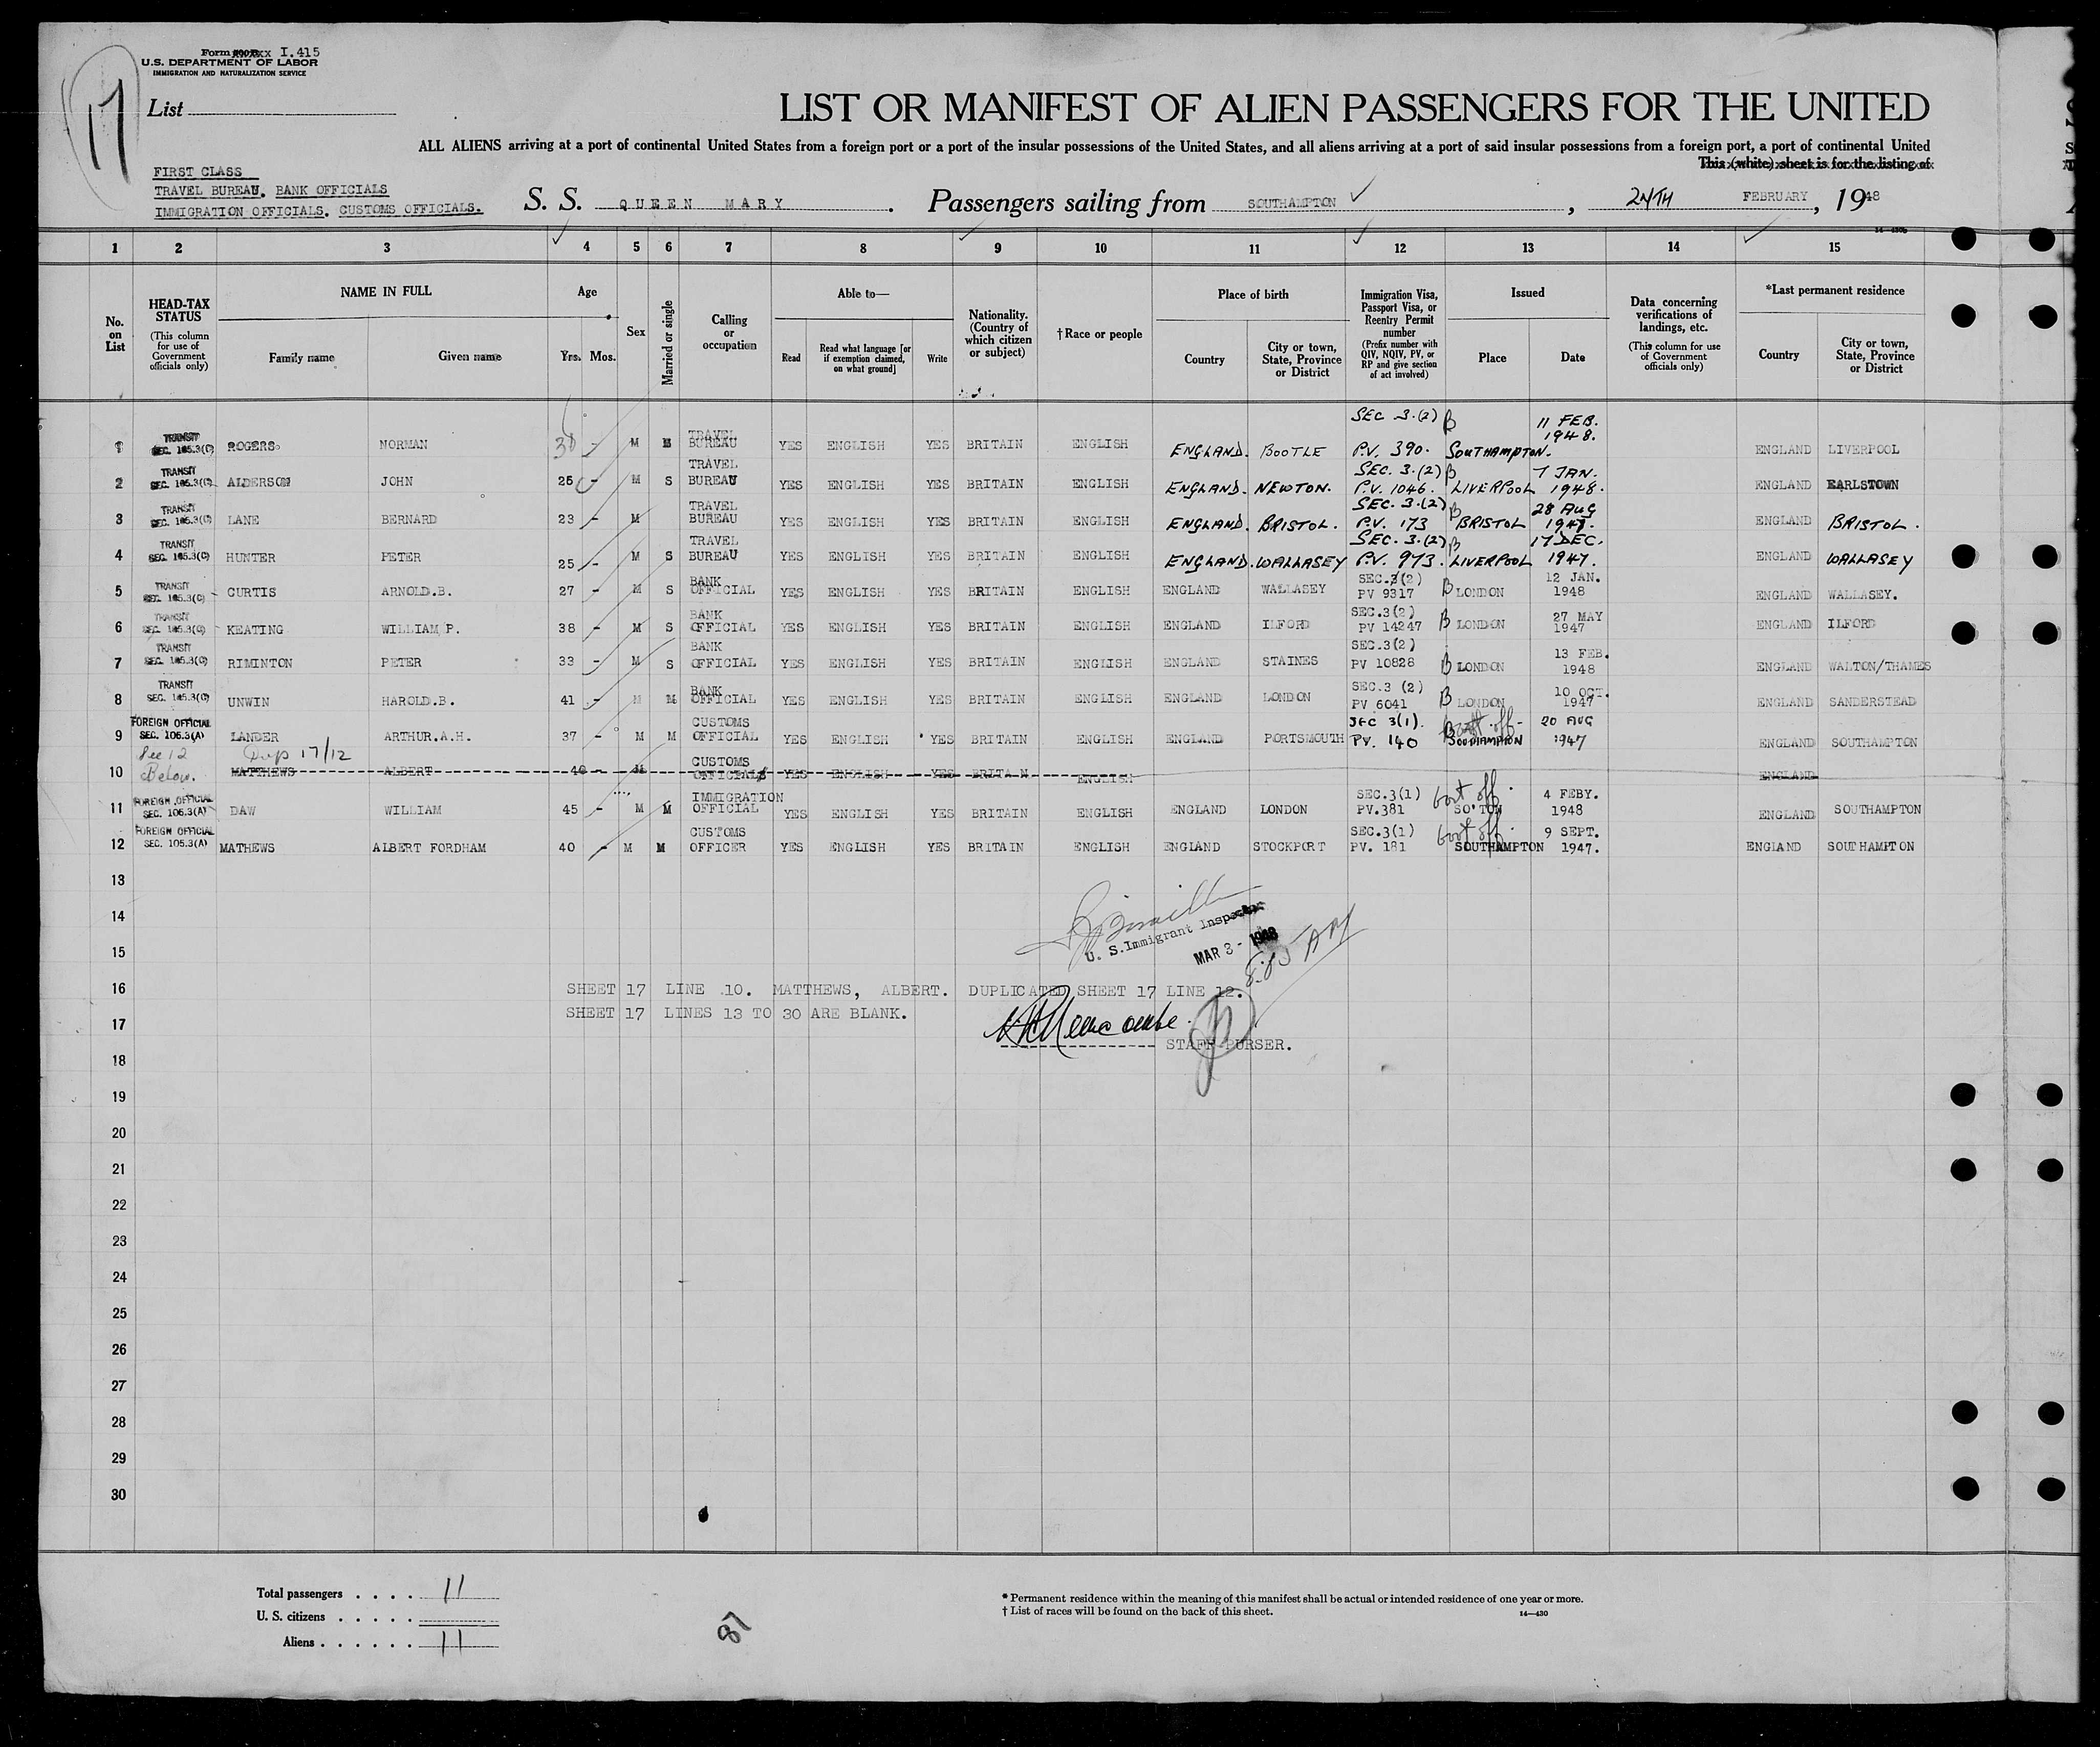 17
Form I.415
U.S. DEPARTMENT OF LABOR
IMMIGRATION AND NATURALIZATION SERVICE
List
LIST OR MANIFEST OF ALIEN PASSENGERS FOR THE UNITED
ALL ALIENS arriving at a port of continental United States from a foreign port or a port of the insular possessions of the United States, and all aliens arriving at a port of said insular possessions from a foreign port, a port of continental United
This (white) sheet is for the listing of
FIRST CLASS
TRAVEL BUREAU. BANK OFFICIALS
IMMIGRATION OFFICIALS. CUSTOMS OFFICIALS.
S. S. QUEEN MARY. Passengers sailing from SOUTHAMPTON, 24TH FEBRUARY, 1948
14-430b
1 2 3 4 5 6 7 8 9 10 11 12 13 14 15
No. on List
HEAD-TAX STATUS (This column for use of Government officials only)
NAME IN FULL Family name Given name
Age Yrs. Mos.
Sex
Married or single
Calling or occupation
Able to— Read Read what language [or if exemption claimed, on what ground] Write
Nationality. (Country of which citizen or subject)
†Race or people
Place of birth Country City or town, State, Province or District
Immigration Visa, Passport Visa, or Reentry Permit number (Prefix number with QIV, NQIV, PV, or RP and give section of act involved)
Issued Place Date
Data concerning verifications of landings, etc. (This column for use of Government officials only)
*Last permanent residence Country City or town, State, Province or District
1 TRANSIT SEC. 105.3(C) ROGERS NORMAN 38 - M M TRAVEL BUREAU YES ENGLISH YES BRITAIN ENGLISH ENGLAND. BOOTLE SEC 3.(2) P.V. 390. B SOUTHAMPTON. 11 FEB. 1948. ENGLAND LIVERPOOL
2 TRANSIT SEC. 105.3(C) ALDERSON JOHN 25 - M S TRAVEL BUREAU YES ENGLISH YES BRITAIN ENGLISH ENGLAND. NEWTON. SEC. 3.(2) P.V. 1046. B LIVERPOOL 7 JAN. 1948. ENGLAND EARLSTOWN
3 TRANSIT SEC. 105.3(C) LANE BERNARD 23 - M TRAVEL BUREAU YES ENGLISH YES BRITAIN ENGLISH ENGLAND. BRISTOL. SEC. 3.(2) P.V. 173 B BRISTOL 28 AUG 1947. ENGLAND BRISTOL.
4 TRANSIT SEC. 105.3(C) HUNTER PETER 25 - M S TRAVEL BUREAU YES ENGLISH YES BRITAIN ENGLISH ENGLAND. WALLASEY SEC. 3.(2) P.V. 973. B LIVERPOOL 17 DEC. 1947. ENGLAND WALLASEY
5 TRANSIT SEC. 105.3(C) CURTIS ARNOLD.B. 27 - M S BANK OFFICIAL YES ENGLISH YES BRITAIN ENGLISH ENGLAND WALLASEY SEC.3(2) PV 9317 B LONDON 12 JAN. 1948 ENGLAND WALLASEY.
6 TRANSIT SEC. 105.3(C) KEATING WILLIAM P. 38 - M S BANK OFFICIAL YES ENGLISH YES BRITAIN ENGLISH ENGLAND ILFORD SEC.3(2) PV 14247 B LONDON 27 MAY 1947 ENGLAND ILFORD
7 TRANSIT SEC. 105.3(C) RIMINTON PETER 33 - M S BANK OFFICIAL YES ENGLISH YES BRITAIN ENGLISH ENGLAND STAINES SEC.3(2) PV 10828 B LONDON 13 FEB. 1948 ENGLAND WALTON/THAMES
8 TRANSIT SEC. 105.3(C) UNWIN HAROLD.B. 41 - M M BANK OFFICIAL YES ENGLISH YES BRITAIN ENGLISH ENGLAND LONDON SEC.3 (2) PV 6041 B LONDON 10 OCT. 1947 ENGLAND SANDERSTEAD
9 FOREIGN OFFICIAL SEC. 105.3(A) LANDER ARTHUR.A.H. 37 - M M CUSTOMS OFFICIAL YES ENGLISH YES BRITAIN ENGLISH ENGLAND PORTSMOUTH SEC 3(1). PV. 140 Govt off. SOUTHAMPTON 20 AUG 1947 ENGLAND SOUTHAMPTON
See 12 Below. Dup 17/12
10 MATTHEWS ALBERT 40 - M CUSTOMS OFFICIAL YES ENGLISH YES BRITAIN ENGLISH ENGLAND
11 FOREIGN OFFICIAL SEC. 105.3(A) DAW WILLIAM 45 - M M IMMIGRATION OFFICIAL YES ENGLISH YES BRITAIN ENGLISH ENGLAND LONDON SEC.3(1) PV.381 Govt off. SO'TON 4 FEBY. 1948 ENGLAND SOUTHAMPTON
12 FOREIGN OFFICIAL SEC. 105.3(A) MATHEWS ALBERT FORDHAM 40 - M M CUSTOMS OFFICER YES ENGLISH YES BRITAIN ENGLISH ENGLAND STOCKPORT SEC.3(1) PV. 181 Govt off. SOUTHAMPTON 9 SEPT. 1947. ENGLAND SOUTHAMPTON
13
14
U. S. Immigrant Inspector
15
MAR 3 - 1948 8:05 AM
16 SHEET 17 LINE 10. MATTHEWS, ALBERT. DUPLICATED SHEET 17 LINE 12.
17 SHEET 17 LINES 13 TO 30 ARE BLANK.
STAFF PURSER.
18
19
20
21
22
23
24
25
26
27
28
29
30
Total passengers . . . . 11
U. S. citizens . . . . .
Aliens . . . . . . 11
87
* Permanent residence within the meaning of this manifest shall be actual or intended residence of one year or more.
† List of races will be found on the back of this sheet.
14—430